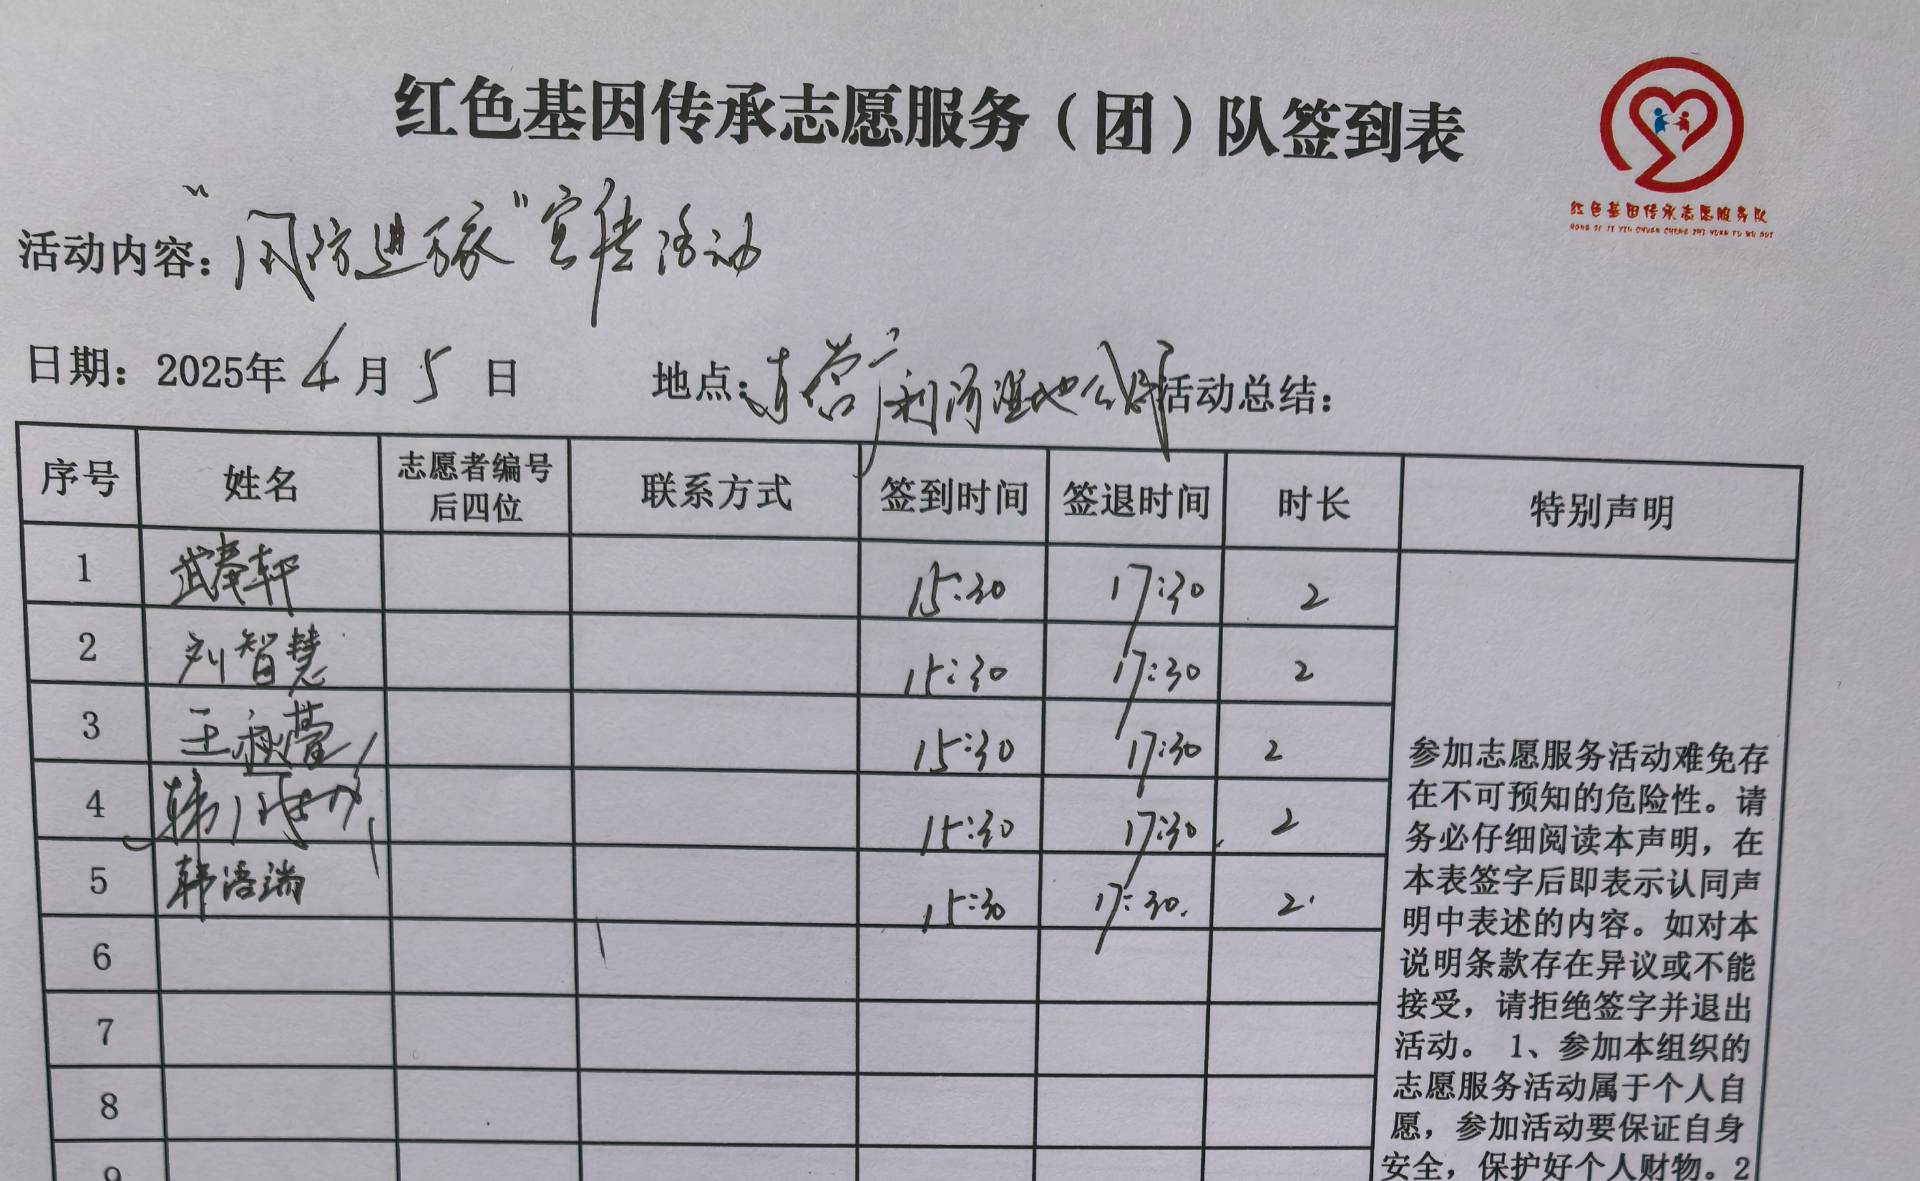 红色基因传承志愿服务（团）队签到表
红色基因传承志愿服务队
HONG SE JI YIN CHUAN CHENG ZHI YUAN FU WU DUI
活动内容：“国防进万家”宣传活动
日期：2025年4月5日 地点：东营广利河湿地公园 活动总结：
序号 姓名 志愿者编号后四位 联系方式 签到时间 签退时间 时长 特别声明
1 武奉轩 15:30 17:30 2
2 刘智慧 15:30 17:30 2
3 王 15:30 17:30 2
4 韩 15:30 17:30 2
5 韩语端 15:30 17:30. 2
6
7
8
9
参加志愿服务活动难免存
在不可预知的危险性。请
务必仔细阅读本声明，在
本表签字后即表示认同声
明中表述的内容。如对本
说明条款存在异议或不能
接受，请拒绝签字并退出
活动。 1、参加本组织的
志愿服务活动属于个人自
愿，参加活动要保证自身
安全，保护好个人财物。2